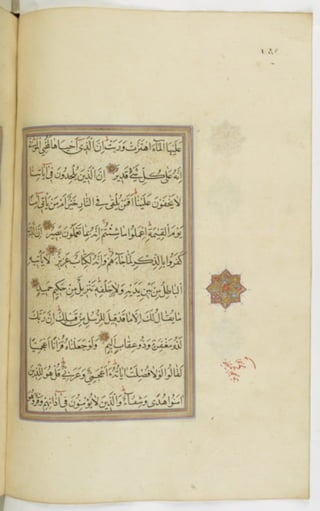 عليها الماء اهتزت وربت ان الذي احياها لمحي الموتى
انه على كل شئ قدير ان الذين يلحدون في اياتنا
لا يخفون علينا افمن يلقى في النار خير ام من ياتي امنا
يوم القيمة اعملوا ما شئتم انه بما تعملون بصير ان الذين
كفروا بالذكر لما جاءهم وانه لكتاب عزيز لا ياتيه
الباطل من بين يديه ولا من خلفه تنزيل من حكيم حميد
ما يقال لك الا ما قد قيل للرسل من قبلك ان ربك
لذو مغفرة وذو عقاب اليم ولو جعلناه قرانا اعجميا
لقالوا لولا فصلت اياته ءاعجمي وعربي قل هو للذين
امنوا هدى وشفاء والذين لا يؤمنون في اذانهم وقر وهو